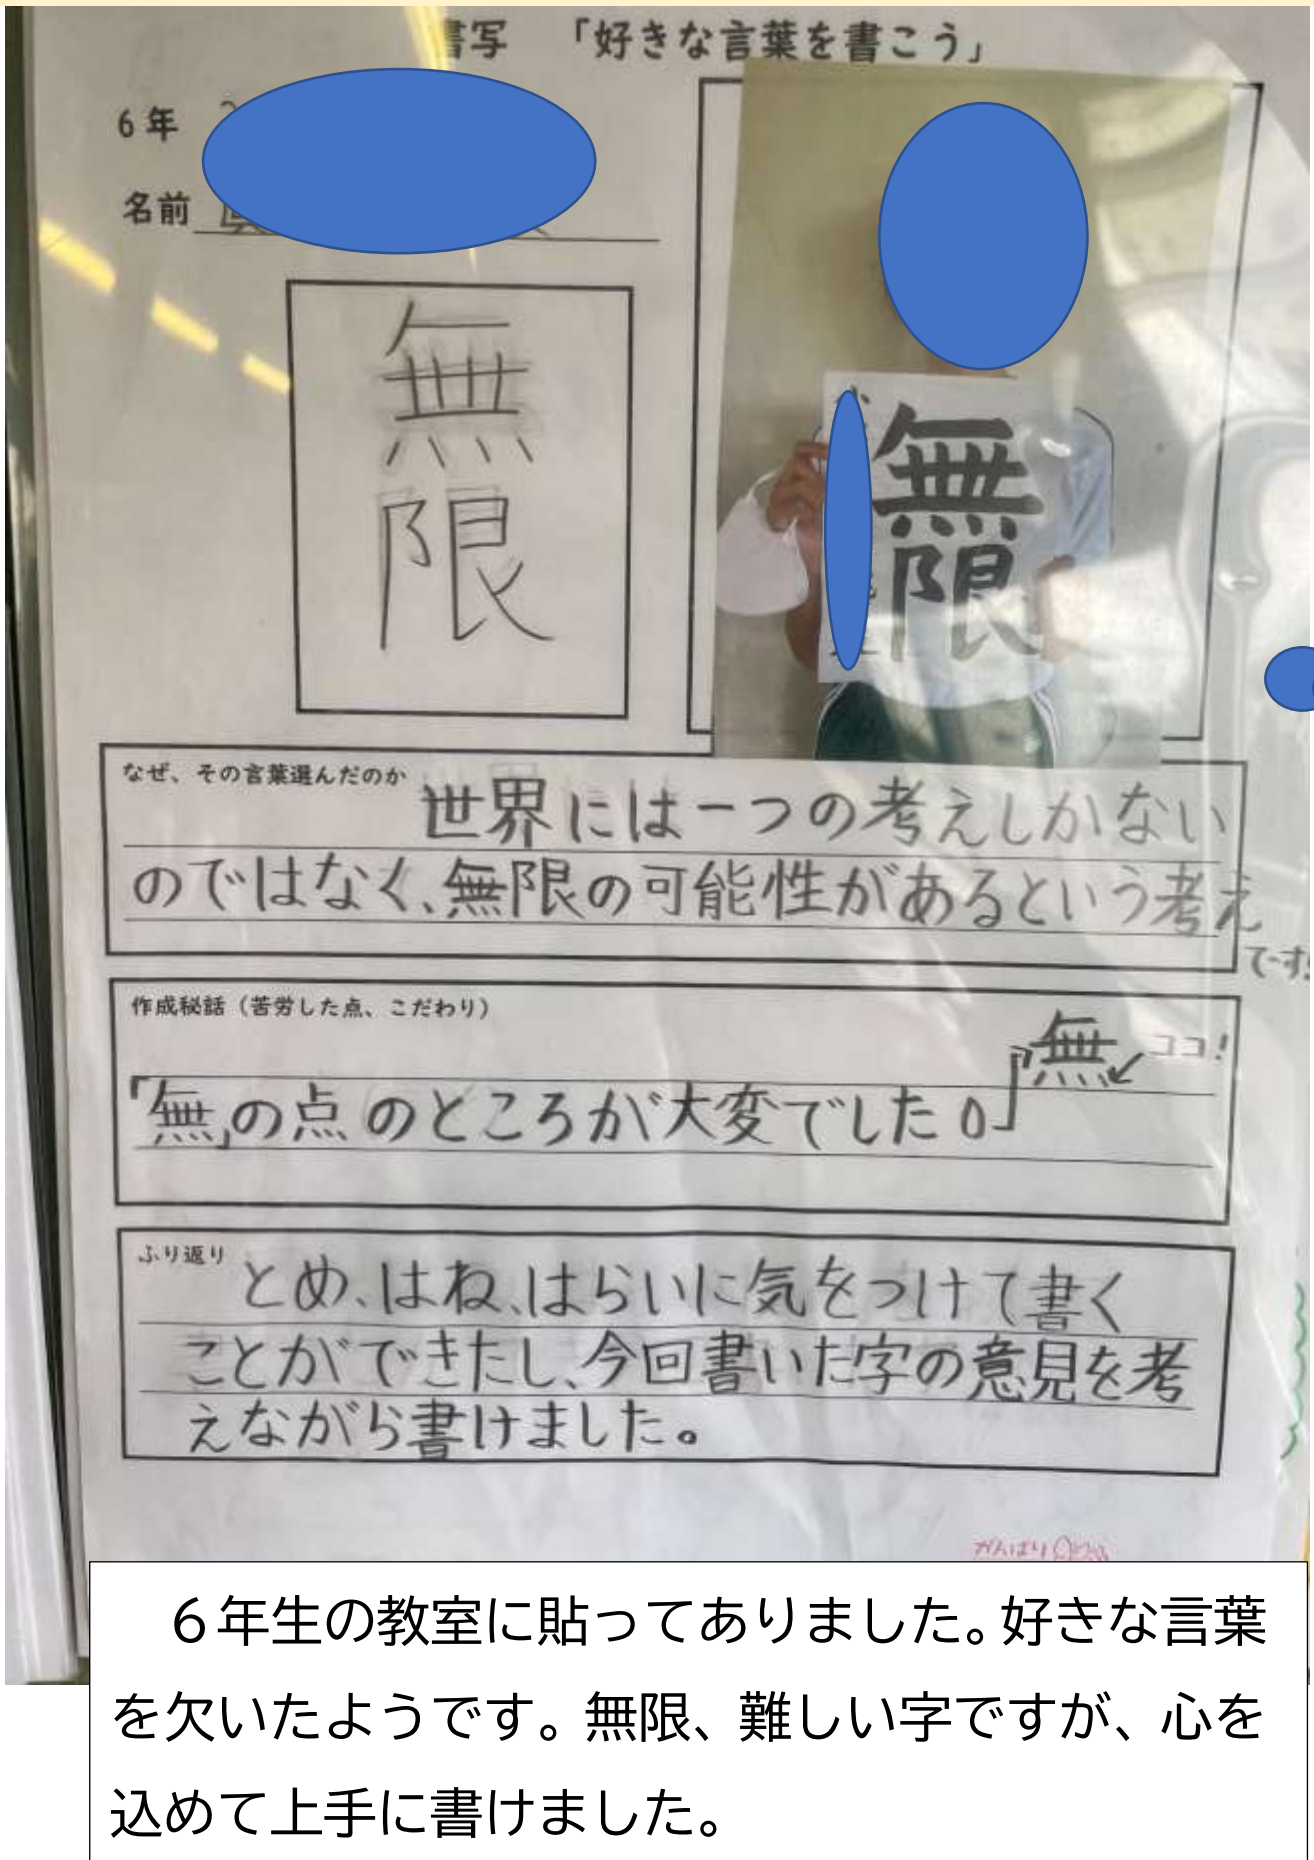 書写 「好きな言葉を書こう」
6年
名前
無
限
無
限
なぜ、その言葉選んだのか
世界には一つの考えしかない
のではなく、無限の可能性があるという考え
です!
作成秘話（苦労した点、こだわり）
無 ココ!
「「無」の点のところが大変でした。」
ふり返り
とめ、はね、はらいに気をつけて書く
ことができたし、今回書いた字の意見を考
えながら書けました。
がんばり
６年生の教室に貼ってありました。好きな言葉
を欠いたようです。無限、難しい字ですが、心を
込めて上手に書けました。